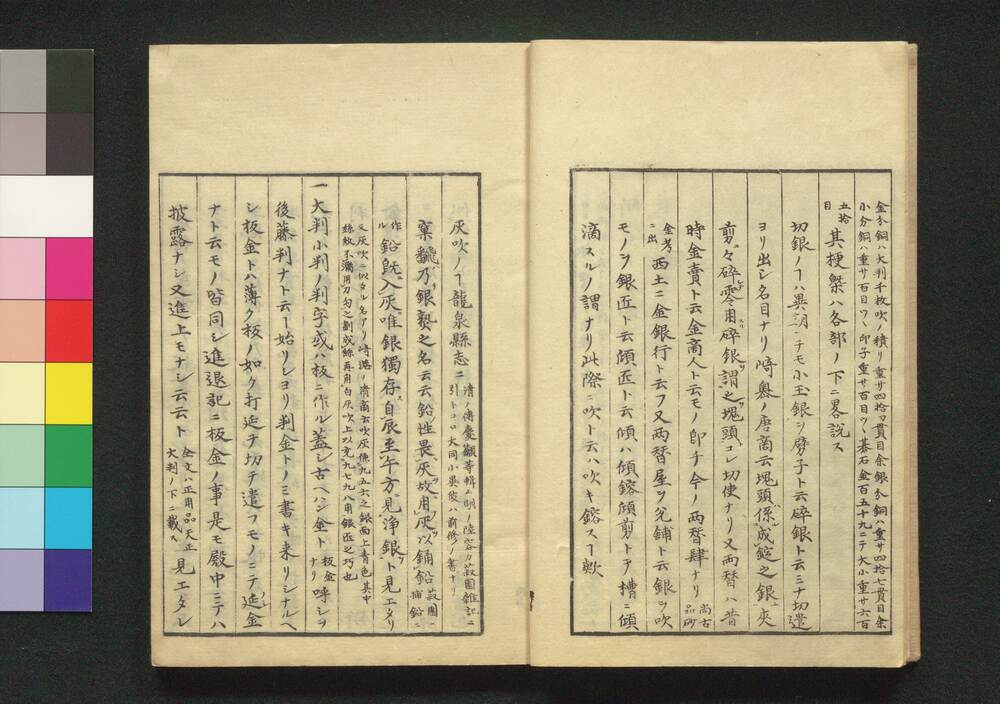 金分銅ハ大判千枚吹ノ積リ重サ四拾一貫目余銀分銅ハ重サ四拾七貫目余
小分銅ハ重サ百目ツヽ印子重サ百目ツヽ碁石金百五十九ニテ大小重サ六百
五拾目
其梗槩ハ各部ノ下ニ畧説ス
切銀ノヿハ異朝ニテモ小玉銀ヲ磨子ト云碎銀ト云ニナ切遣
ヨリ出シ名目ナリ﨑奥ノ唐商云塊頭係成錠之銀夾
剪々碎零用碎銀謂之塊頭コレ切使ナリ又両替ハ昔
時金賣ト云金商人ト云モノ即チ今ノ両替肆ナリ尚古品砂
金考ニ出西土ニ金銀行ト云フ又両替屋ヲ兌鋪ト云銀ヲ吹
モノヲ銀匠ト云傾匠ト云傾ハ傾鎔傾剪トテ槽ニ傾
滴スルノ謂ナリ此際ニ吹ト云ハ吹キ鎔スヿ歟
灰吹ノヿ龍泉縣志ニ清ノ
引トコロ大同小異
棄乃銀之名云云鉛性畏灰故用灰以鋪鉛菽園
作ル鉛既入灰唯銀獨存自辰至午方見浄銀ト見エタリ
又灰吹ニ似タル名アリ﨑港ノ清商云吹灰係九五六之銀面上青色其中
絲紋不満用刀勾之劃成絲再用白灰吹上以充九七九八用銀匠之巧也
一大判小判ノ判字或ハ板ニ作ル蓋シ古ヘハン金ト板金ナリ呼シヲ
後藤判ナト云ヿ始リシヨリ判金トノミ書キ来リシナルヘ
シ板金トハ薄ク板ノ如ク打延チ切チ遣フモノニテ延金
ナト云モノ皆同シ進退記ニ板金ノ事是モ殿中ニテハ
披露ナシ又進上モナシ云云ト全文ハ正用品天正大判ノ下ニ載ス見エタレ